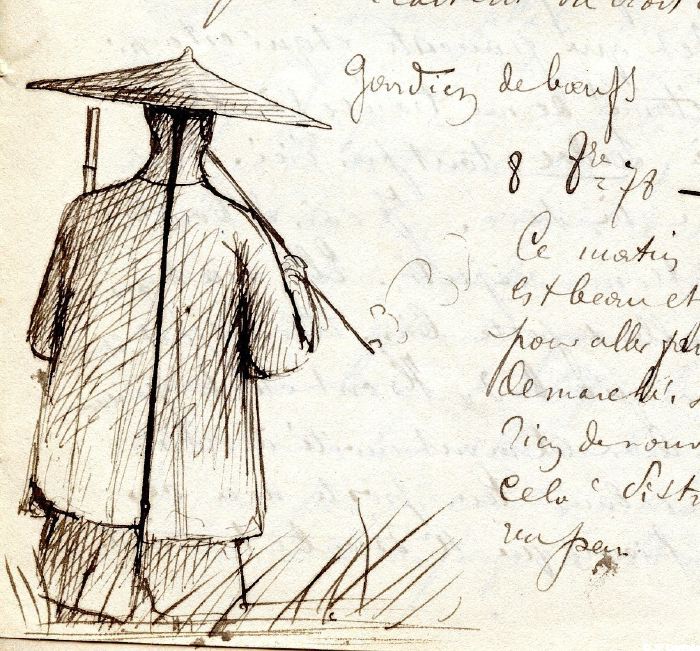 Gardien de bœufs
8 8bre 78 —
Ce matin
est beau et
pour aller
de marché,
rien de nouv
cela distr
un peu.